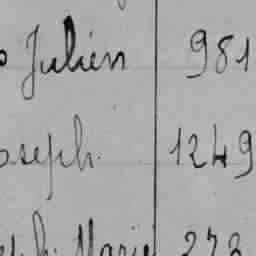 Julien 981
oseph. 1249
ph. Marie 273